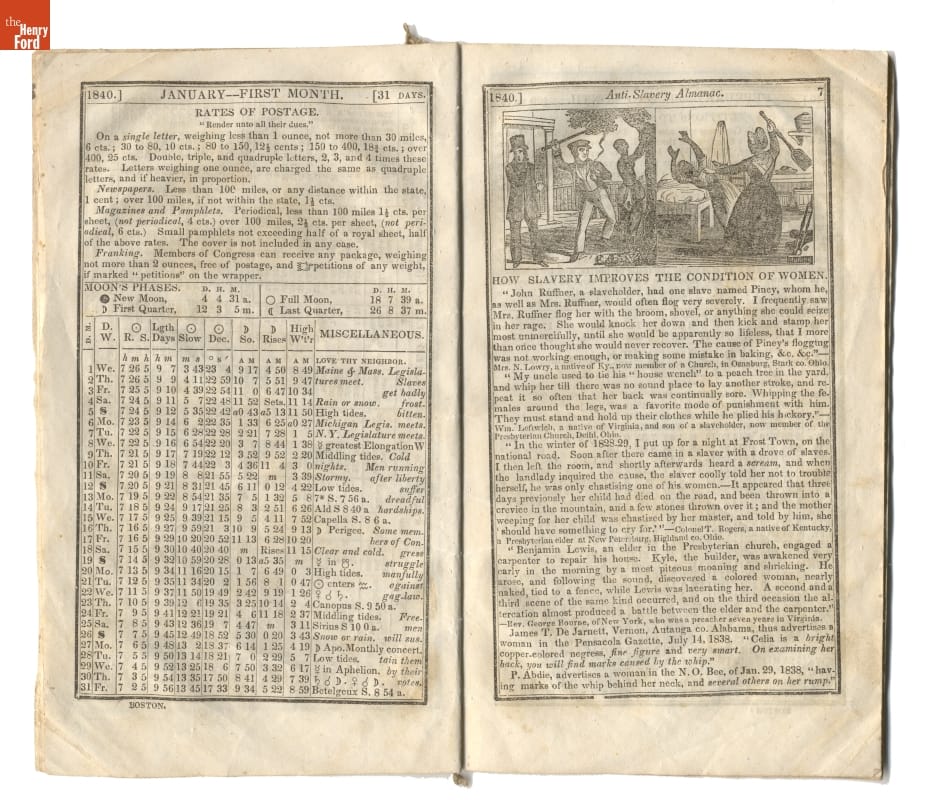 the
Henry
Ford
1840.] JANUARY—FIRST MONTH. [31 DAYS.
RATES OF POSTAGE.
"Render unto all their dues."
On a single letter, weighing less than 1 ounce, not more than 30 miles,
6 cts.; 30 to 80, 10 cts.; 80 to 150, 12½ cents; 150 to 400, 18¾ cts.; over
400, 25 cts. Double, triple, and quadruple letters, 2, 3, and 4 times these
rates. Letters weighing one ounce, are charged the same as quadruple
letters, and if heavier, in proportion.
Newspapers. Less than 100 miles, or any distance within the state,
1 cent; over 100 miles, if not within the state, 1½ cts.
Magazines and Pamphlets. Periodical, less than 100 miles 1½ cts. per
sheet, (not periodical, 4 cts.) over 100 miles, 2½ cts. per sheet, (not peri-
odical, 6 cts.) Small pamphlets not exceeding half of a royal sheet, half
of the above rates. The cover is not included in any case.
Franking. Members of Congress can receive any package, weighing
not more than 2 ounces, free of postage, and ☞petitions of any weight,
if marked "petitions" on the wrapper.
MOON'S PHASES. D. H. M. D. H. M.
New Moon, 4 4 31 a. Full Moon, 18 7 39 a.
First Quarter, 12 3 5 m. Last Quarter, 26 8 37 m.
D. M. D. W. ☉ R. ☉ S. Lgth Days ☉ Slow ☉ Dec. ☽ So. ☽ Rises High Wt'r MISCELLANEOUS.
h m h h m m s ° ' A M A M A M LOVE THY NEIGHBOR.
1 We. 7 26 5 9 7 3 43 23 4 9 17 4 50 8 49 Maine & Mass. Legisla-
2 Th. 7 26 5 9 9 4 11 22 59 10 7 5 51 9 47 tures meet. Slaves
3 Fr. 7 25 5 9 10 4 39 22 54 11 0 6 47 10 34 get badly
4 Sa. 7 24 5 9 11 5 7 22 48 11 52 Sets. 11 14 Rain or snow. frost-
5 S 7 24 5 9 12 5 35 22 42 a0 43 a5 13 11 50 High tides. bitten.
6 Mo. 7 23 5 9 14 6 2 22 35 1 33 6 25 a0 27 Michigan Legis. meets.
7 Tu. 7 22 5 9 15 6 28 22 28 2 21 7 28 1 5 N. Y. Legislature meets.
8 We. 7 22 5 9 16 6 54 22 20 3 7 8 44 1 38 ☿ greatest Elongation W
9 Th. 7 21 5 9 17 7 19 22 12 3 52 9 52 2 20 Middling tides. Cold
10 Fr. 7 21 5 9 18 7 44 22 3 4 36 11 4 3 0 nights. Men running
11 Sa. 7 20 5 9 19 8 8 21 55 5 22 m 3 39 Stormy. after liberty
12 S 7 20 5 9 21 8 31 21 45 6 11 0 12 4 22 Low tides. suffer
13 Mo. 7 19 5 9 22 8 54 21 35 7 5 1 32 5 8 7* S. 7 56 a. dreadful
14 Tu. 7 18 5 9 24 9 17 21 25 8 3 2 51 6 26 Ald S 8 40 a hardships.
15 We. 7 17 5 9 25 9 39 21 15 9 5 4 11 7 52 Capella S. 8 6 a.
16 Th. 7 16 5 9 27 9 59 21 3 10 9 5 24 9 13 ☽ Perigee. Some mem-
17 Fr. 7 16 5 9 29 10 20 20 52 11 13 6 28 10 20 bers of Con-
18 Sa. 7 15 5 9 30 10 40 20 40 m Rises 11 15 Clear and cold. gress
19 S 7 14 5 9 32 10 59 20 28 0 13 a5 35 m ☿ in ☋. struggle
20 Mo. 7 13 5 9 34 11 16 20 15 1 7 6 49 0 3 High tides. manfully
21 Tu. 7 12 5 9 35 11 34 20 2 1 56 8 1 0 47 ☉ enters ♒. against
22 We. 7 11 5 9 37 11 50 19 49 2 42 9 19 1 26 ♀ ☌ ♄. gag-law.
23 Th. 7 10 5 9 39 12 6 19 35 3 25 10 14 2 4 Canopus S. 9 50 a.
24 Fr. 7 9 5 9 41 12 22 19 21 4 6 11 18 2 37 Middling tides. Free-
25 Sa. 7 8 5 9 43 12 36 19 7 4 47 m 3 11 Sirius S 10 0 a. men
26 S 7 7 5 9 45 12 49 18 52 5 30 0 20 3 43 Snow or rain. will sus-
27 Mo. 7 6 5 9 48 13 2 18 37 6 14 1 25 4 19 ☽ Apo. Monthly concert.
28 Tu. 7 5 5 9 50 13 14 18 21 7 0 2 29 5 7 Low tides. tain them
29 We. 7 4 5 9 52 13 25 18 6 7 50 3 32 6 17 ☿ in Aphelion. by their
30 Th. 7 3 5 9 54 13 35 17 50 8 41 4 29 7 39 ♄ ☌ ☽. ♀ ☌ ☽. votes.
31 Fr. 7 2 5 9 56 13 45 17 33 9 34 5 22 8 59 Betelgeux S. 8 54 a.
BOSTON.
1840.] Anti-Slavery Almanac. 7
HOW SLAVERY IMPROVES THE CONDITION OF WOMEN.
"John Ruffner, a slaveholder, had one slave named Piney, whom he,
as well as Mrs. Ruffner, would often flog very severely. I frequently saw
Mrs. Ruffner flog her with the broom, shovel, or anything she could seize
in her rage. She would knock her down and then kick and stamp her
most unmercifully, until she would be apparently so lifeless, that I more
than once thought she would never recover. The cause of Piney's flogging
was not working enough, or making some mistake in baking, &c. &c."—
Mrs. N. Lowry, a native of Ky., now member of a Church, in Osnaburg, Stark co. Ohio.
"My uncle used to tie his 'house wench' to a peach tree in the yard,
and whip her till there was no sound place to lay another stroke, and re-
peat it so often that her back was continually sore. Whipping the fe-
males around the legs, was a favorite mode of punishment with him.
They must stand and hold up their clothes while he plied his hickory."—
Wm. Leftwich, a native of Virginia, and son of a slaveholder, now member of the
Presbyterian Church, Delhi, Ohio.
"In the winter of 1828-29, I put up for a night at Frost Town, on the
national road. Soon after there came in a slaver with a drove of slaves.
I then left the room, and shortly afterwards heard a scream, and when
the landlady inquired the cause, the slaver coolly told her not to trouble
herself, he was only chastising one of his women.—It appeared that three
days previously her child had died on the road, and been thrown into a
crevice in the mountain, and a few stones thrown over it; and the mother
weeping for her child was chastised by her master, and told by him, she
'should have something to cry for.'"—Colonel T. Rogers, a native of Kentucky,
a Presbyterian elder at New Petersburg, Highland co. Ohio.
"Benjamin Lewis, an elder in the Presbyterian church, engaged a
carpenter to repair his house. Kyle, the builder, was awakened very
early in the morning by a most piteous moaning and shrieking. He
arose, and following the sound, discovered a colored woman, nearly
naked, tied to a fence, while Lewis was lacerating her. A second and a
third scene of the same kind occurred, and on the third occasion the al-
tercation almost produced a battle between the elder and the carpenter."
—Rev. George Bourne, of New York, who was a preacher seven years in Virginia.
James T. De Jarnett, Vernon, Autauga co. Alabama, thus advertises a
woman in the Pensacola Gazette, July 14, 1838. "Celia is a bright
copper-colored negress, fine figure and very smart. On examining her
back, you will find marks caused by the whip."
P. Abdie, advertises a woman in the N. O. Bee, of Jan. 29, 1838, "hav-
ing marks of the whip behind her neck, and several others on her rump."